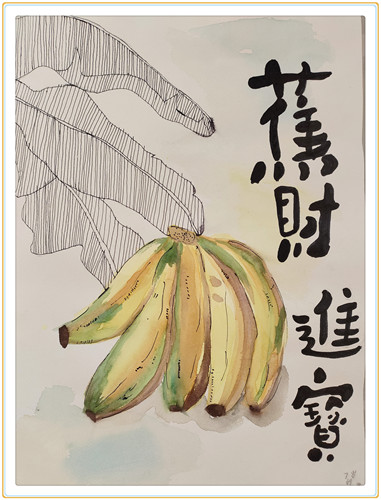 蕉財
進寶